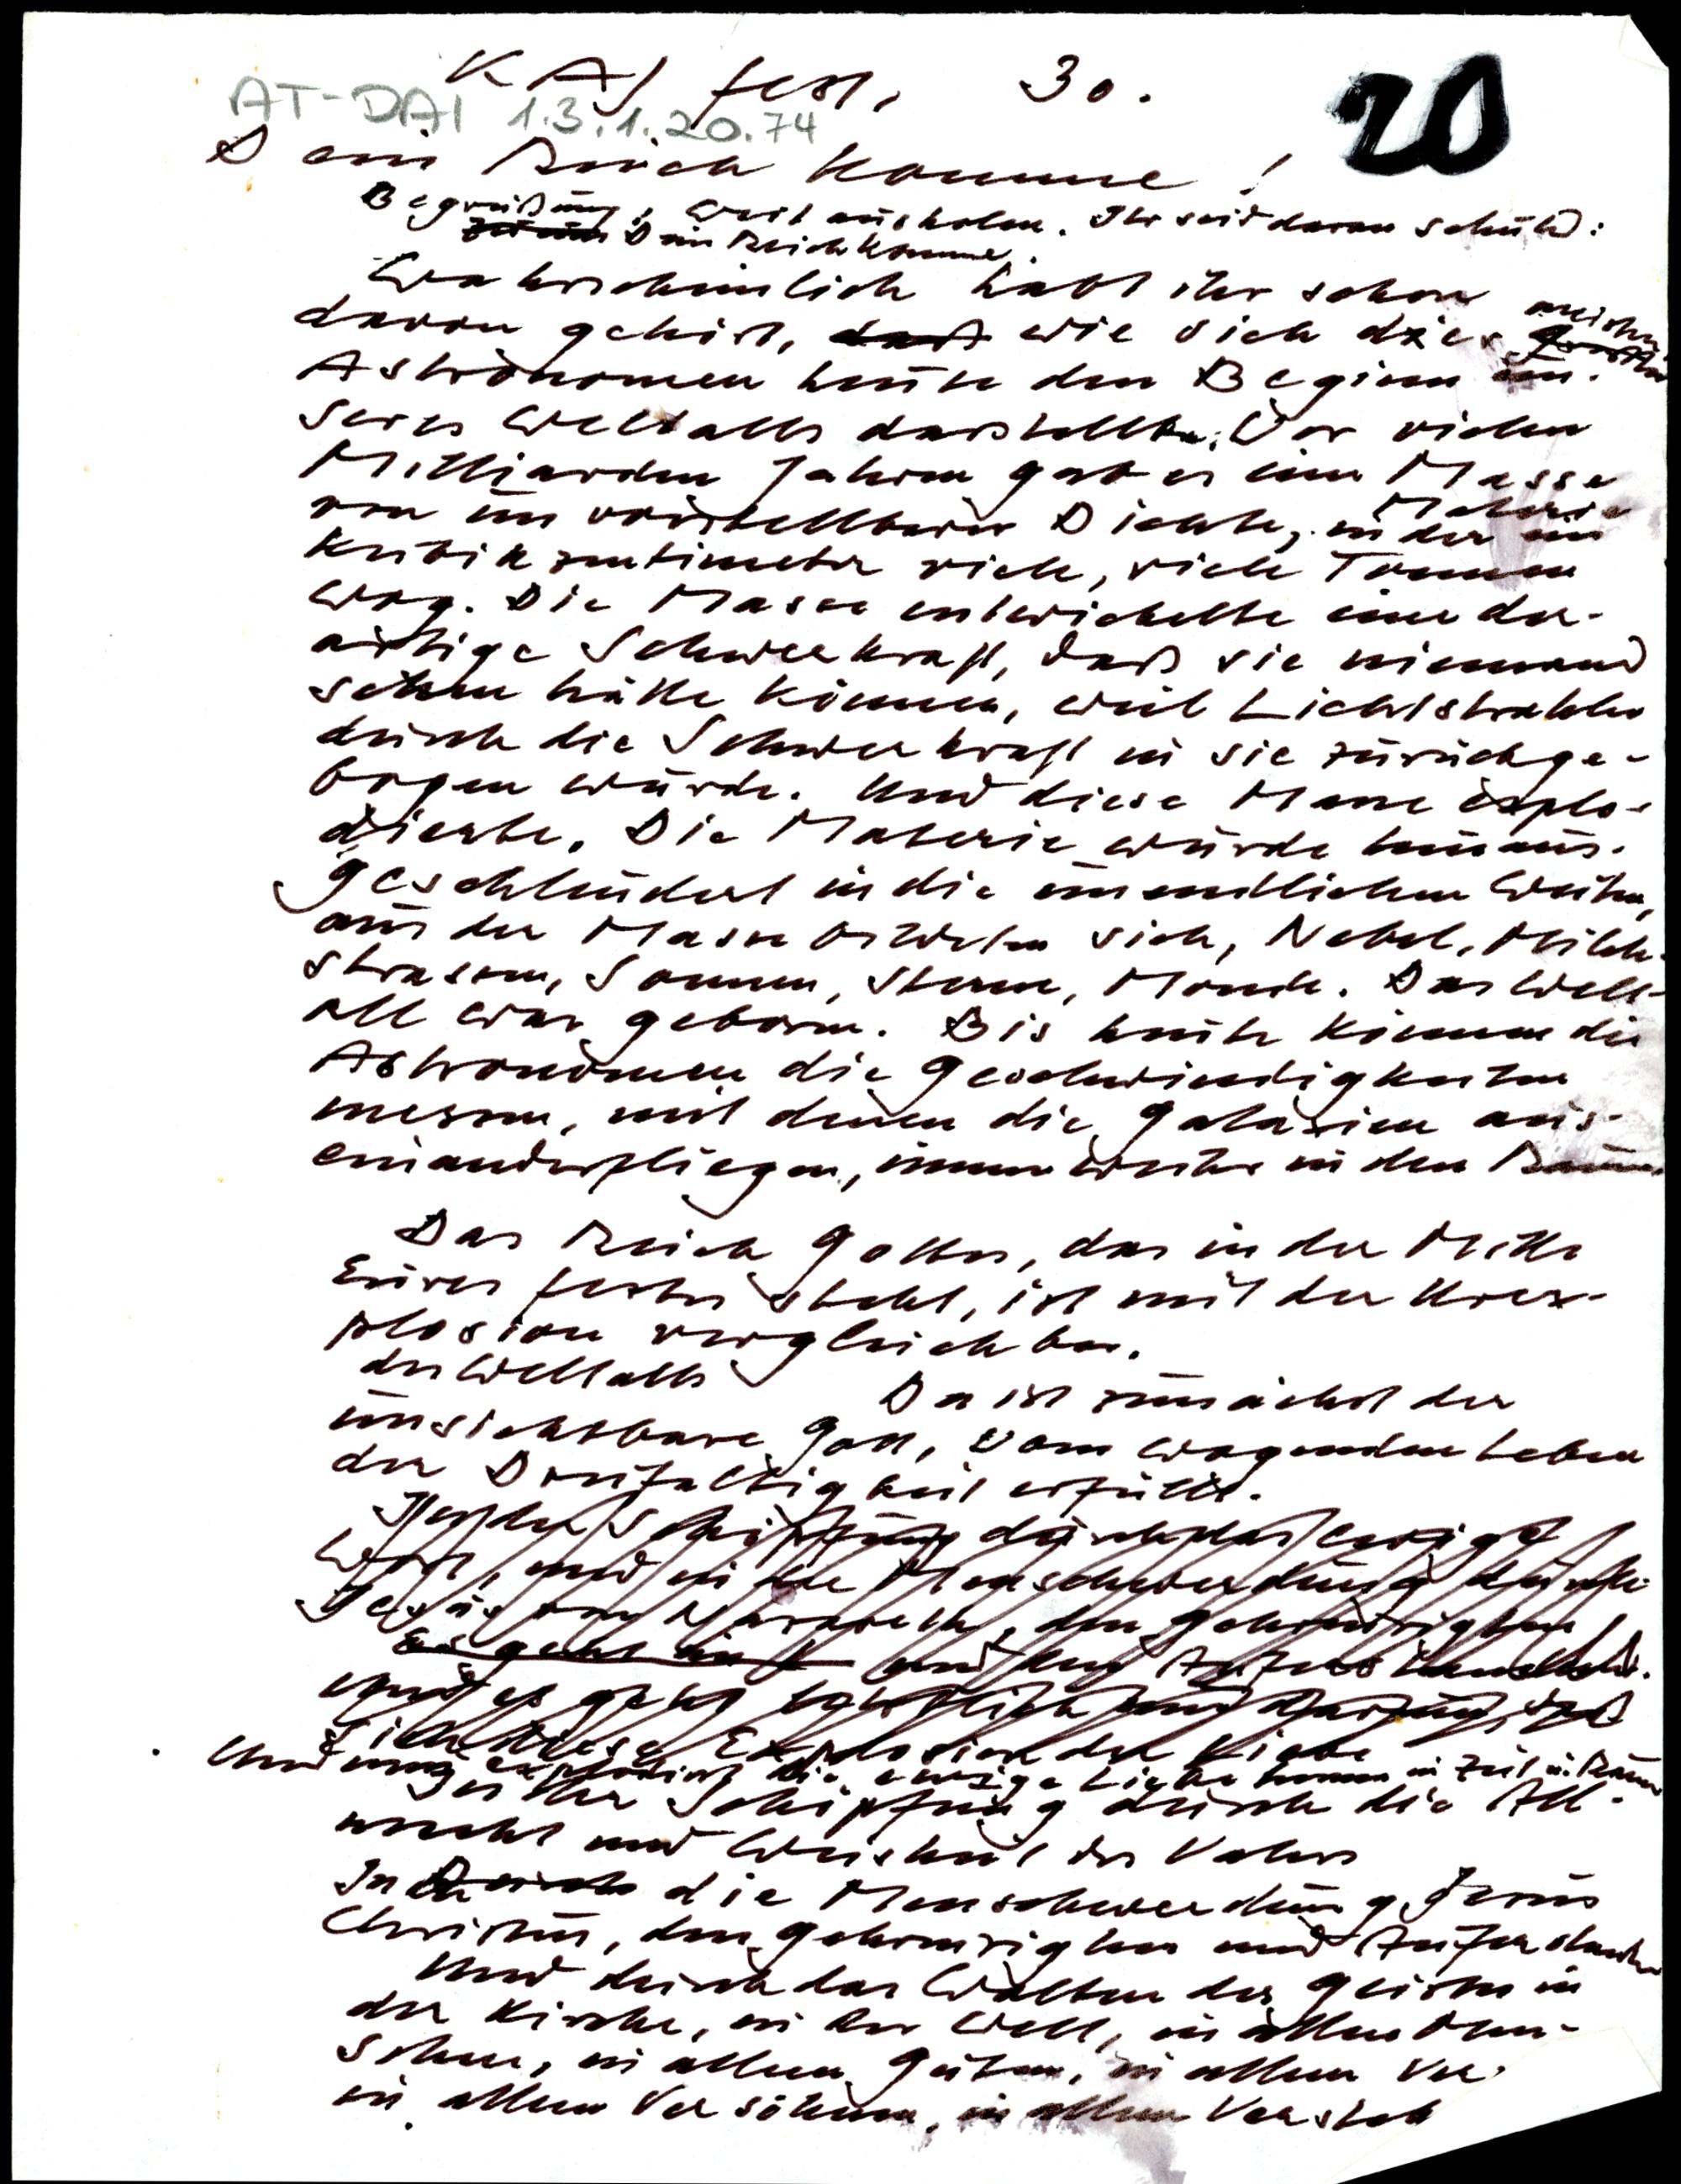 KAJ fest, 30.
20
AT-DAI 1.3.1.20.74
Dein Reich komme!
Begrüßung, weit ausholen. Ihr seid daran schuld:
Dein Reich komme.
Wahrscheinlich habt ihr schon
davon gehört, daß wie sich die meisten
Astronomen heute den Beginn un-
seres Weltalls darstellen. Vor vielen
Milliarden Jahren gab es eine Masse
von unvorstellbarer Dichte, in der ein
Materie
Kubikzentimeter viele, viele Tonnen
wog. Die Masse entwickelte eine der-
artige Schwerkraft, daß sie niemand
sehen hätte können, weil Lichtstrahlen
durch die Schwerkraft in sie zurückge-
bogen wurde. Und diese Masse explo-
dierte. Die Materie wurde hinaus-
geschleudert in die unendlichen Weiten,
aus der Masse bildeten sich, Nebel, Milch-
strassen, Sonnen, Sterne, Monde. Das Welt-
all war geboren. Bis heute können die
Astronomen die Geschwindigkeiten
messen, mit denen die Galaxien aus-
einanderfliegen, immer weiter in den Raum.
Das Reich Gottes, das in der Mitte
Eures Festes steht, ist mit der Urex-
plosion vergleichbar.
des Weltalls
Da ist zunächst der
unsichtbare Gott, vom wogenden Leben
der Dreifaltigkeit erfüllt.
In der Schöpfung durch das ewige
Wort, und in der Menschwerdung durch
Jesus von Nazareth, den gekreuzigten
Es geht um und den Auferstandenen.
und es geht letztlich nur darum, daß
sich diese Explosion der Liebe
Und nun explodiert die ewige Liebe in Zeit u. Raum
In der Schöpfung durch die All-
macht und Weisheit des Vaters
In Durch die Menschwerdung Jesus
Christus, den gekreuzigten und Auferstanden
Und durch das Walten des Geistes in
der Kirche, in der Welt, in allen Men-
schen, in allem Guten, in allem Ver
in allem Versöhnen, in allem Versteh